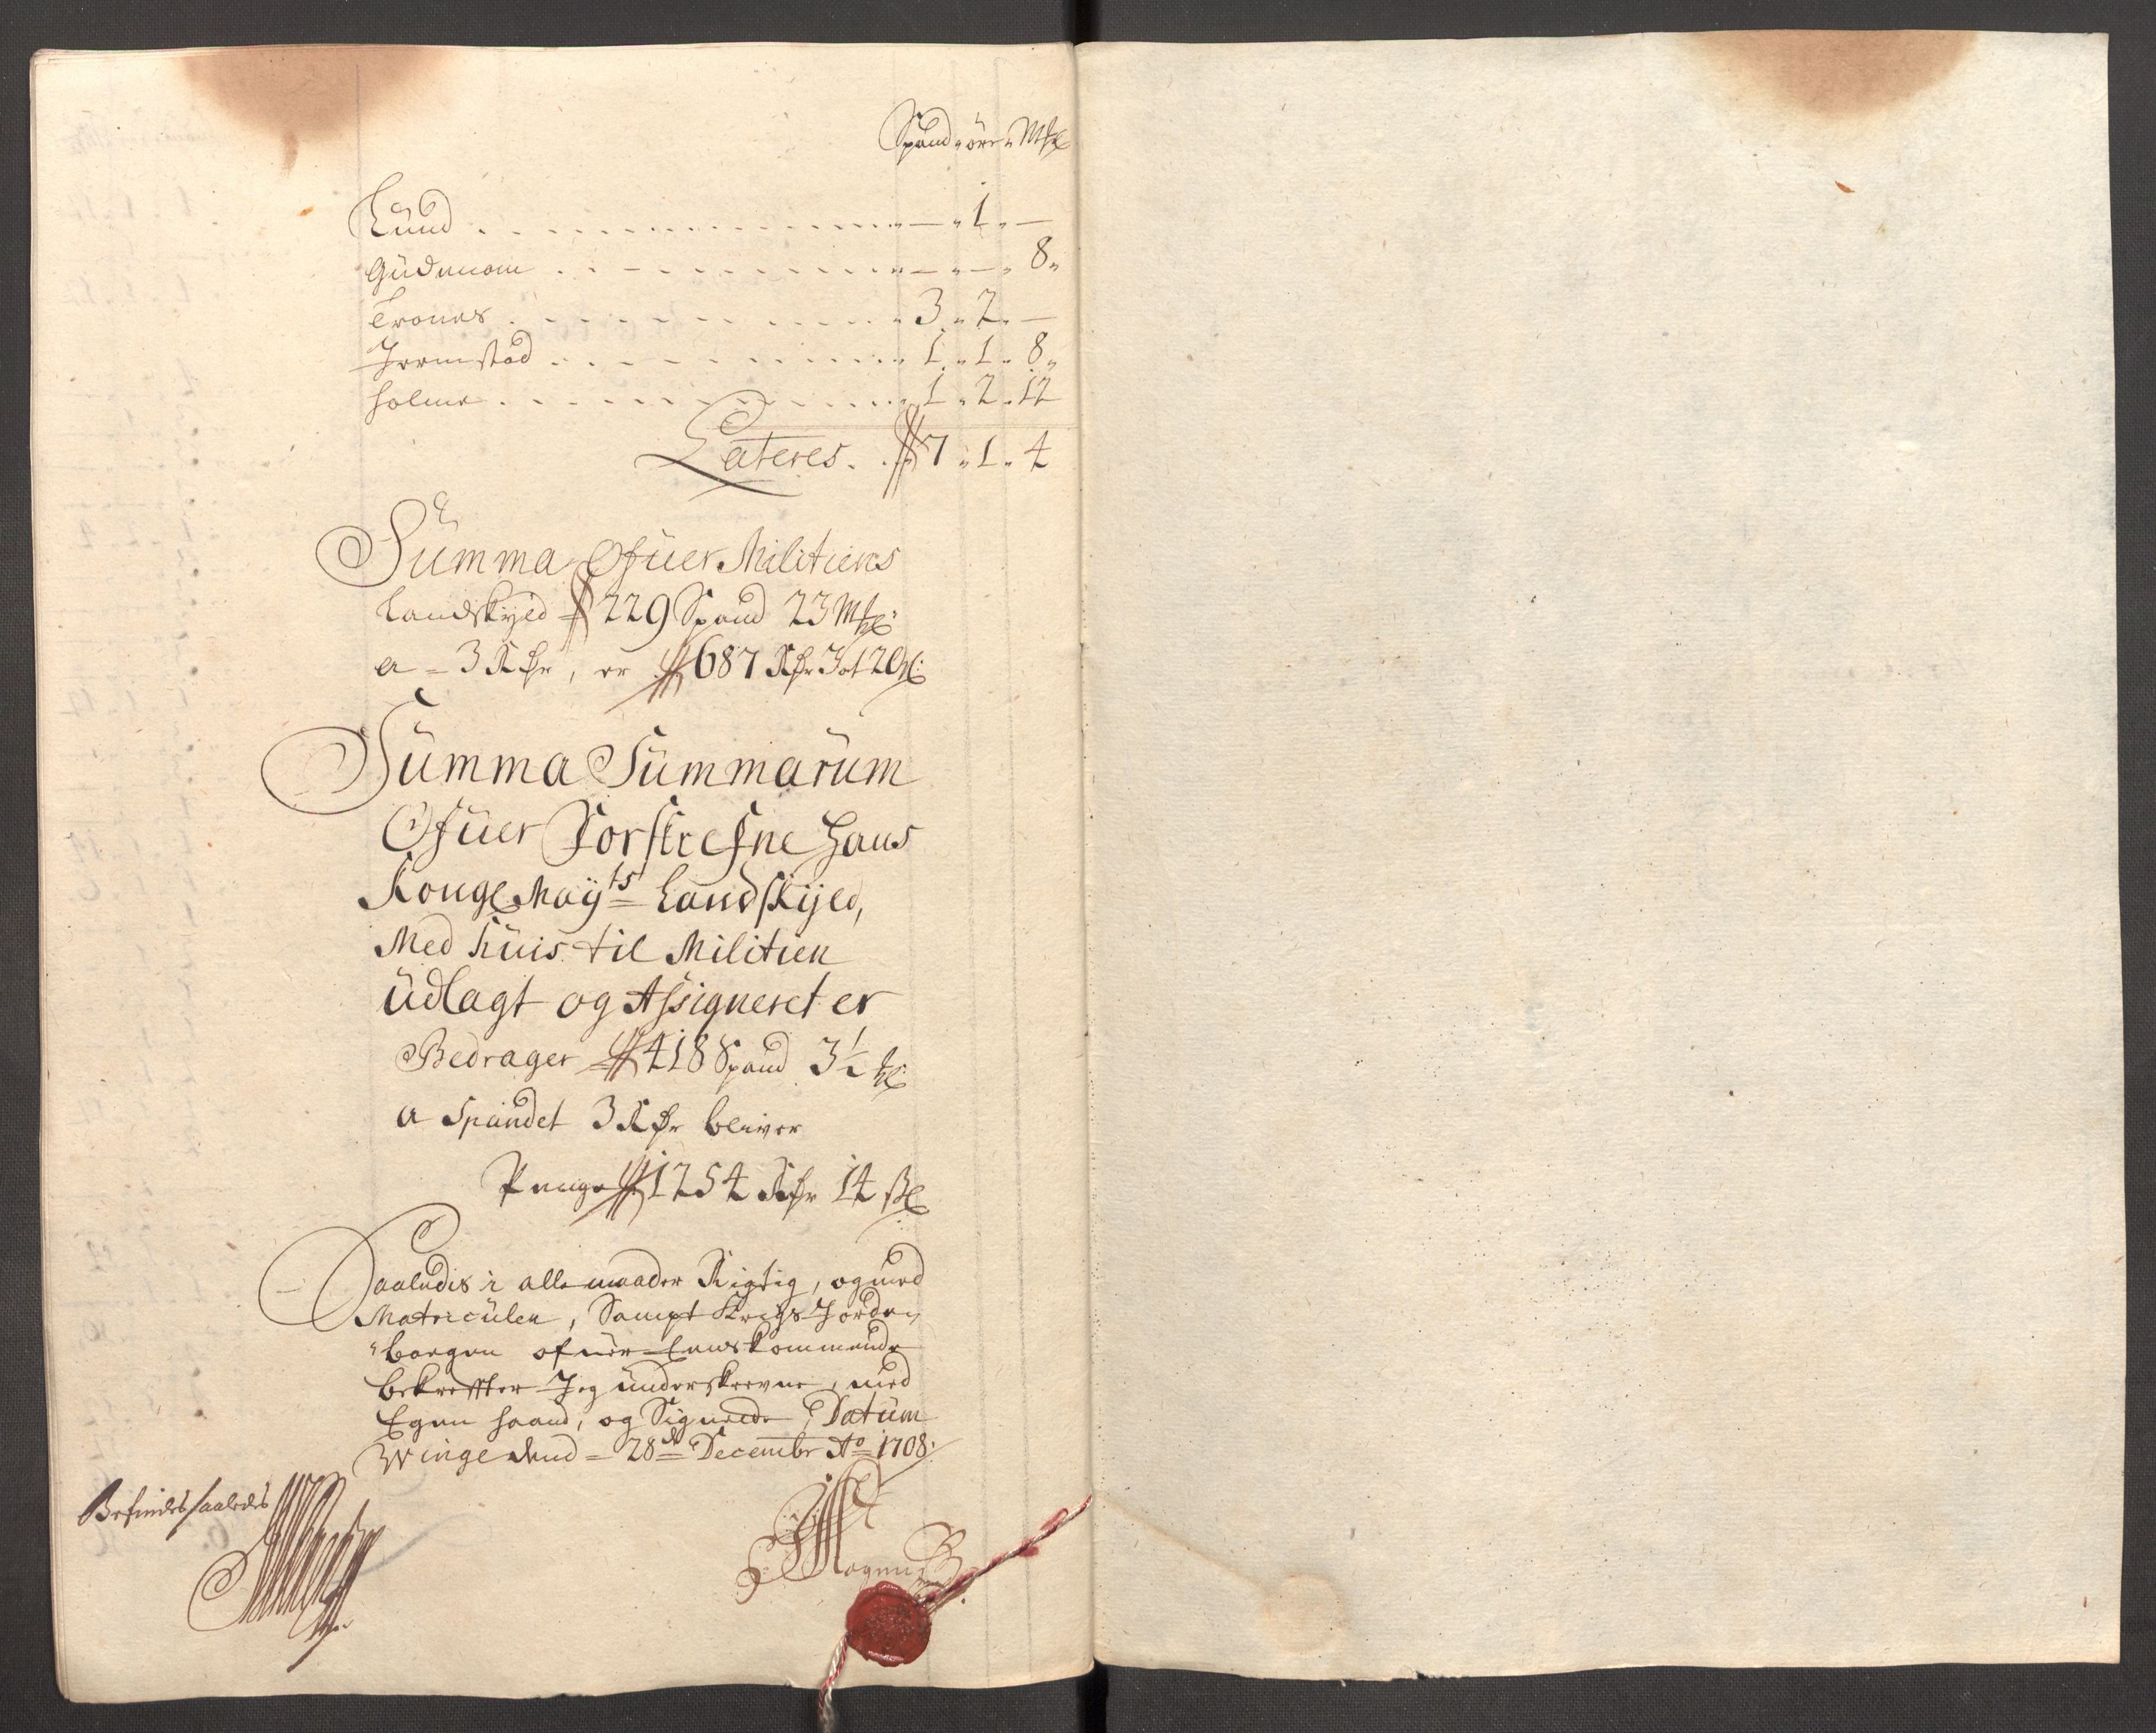 Spand " öre " Mkl
Lund . . . . . . . . — " 1 " —
Gudmoen . . . . . . . . — " — " 8 "
Trones . . . . . . . . 3 " 2 " —
Jermstad . . . . . . . . 1 " 1 " 8 "
Holme . . . . . . . . 1 " 2 " 12
Lateres . . 7 " 1 " 4
Summa Ofuer Militiens
Landskyld 229 Spand 23 Mkl:
a = 3 Rdr, er 687 Rdr 3 ort 20 s:
Summa Summarum
Ofuer Forskrefne Hans
Kongl Mayts Landskyld,
Med huis til Militien
udlagt og Assigneret er
Bedrager 418 Spand 3½ kl:
a Spandet 3 Rdr bliver
Penge 1254 Rdr 14 s
Saaledis i alle maader Rigtig, og med
Matriculen, Sampt Krigs Jorde,
bogen ofuer Eenskommende
bekreffter Jeg underskrevne, med
Egen haand, og Signede, Datum
Winge dend = 28de Decembr Ao 1708:
Befindes saaledes
Mogens